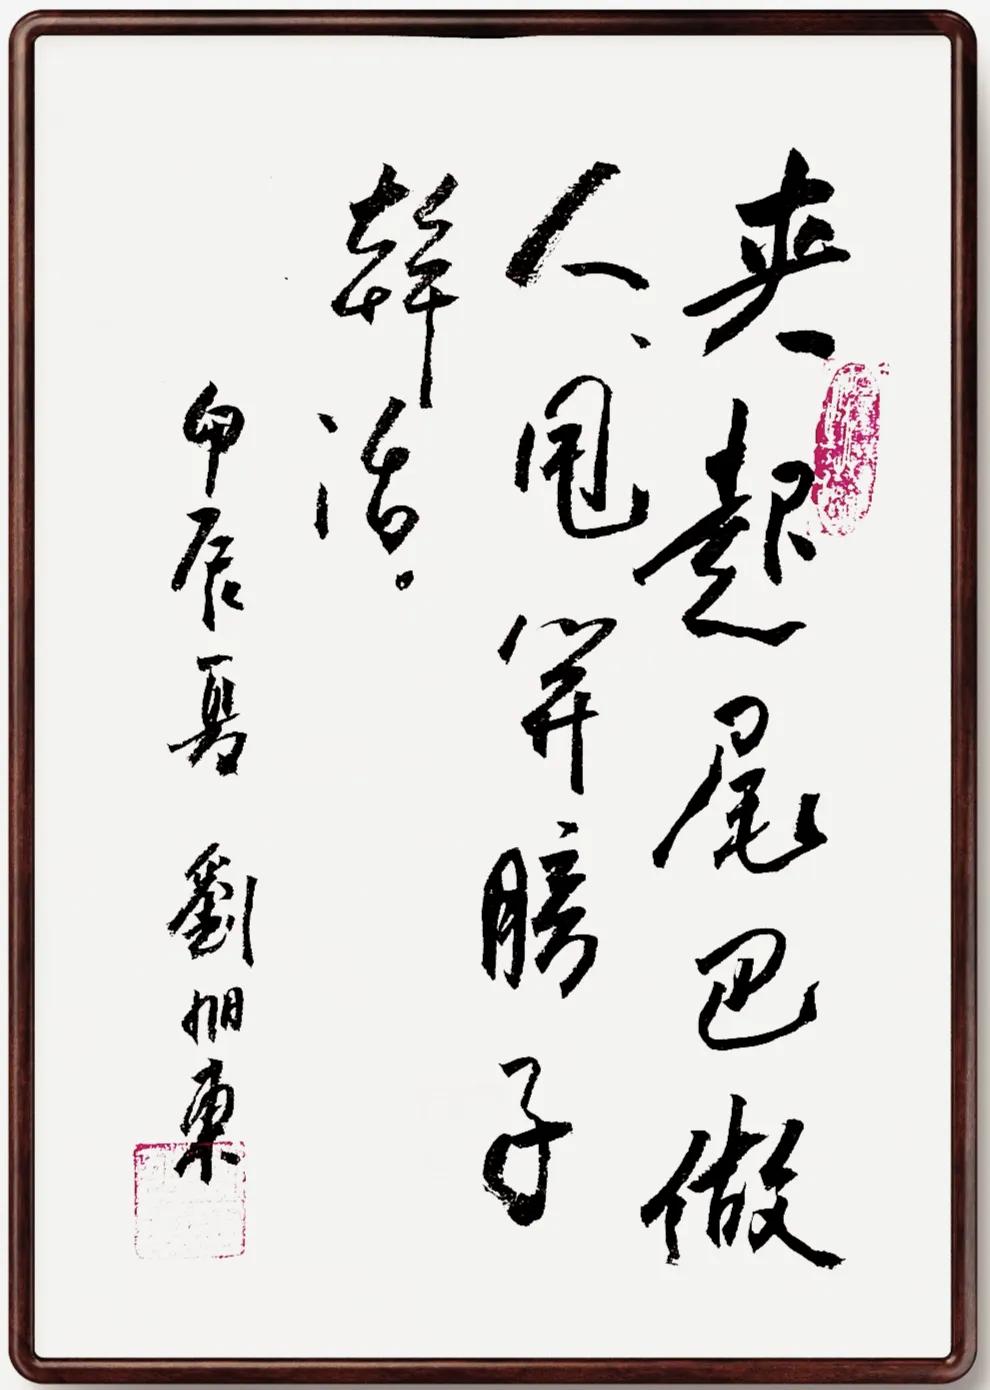 夾起尾巴做
人、甩开膀子
幹活。
甲辰夏 劉旭東